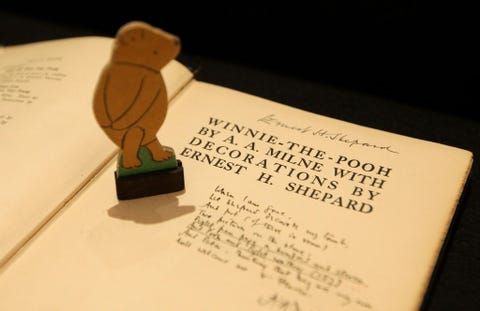 Ernest H. Shepard
WINNIE-THE-POOH
BY A. A. MILNE WITH
DECORATIONS BY
ERNEST H. SHEPARD
When I am gone,
Let Shepard decorate my tomb,
And put (if there is room)
Two pictures on the stone:
Piglet from page a hundred and eleven,
And Pooh and Piglet walking (157)
And Peter, thinking that they are my own,
Will welcome me to Heaven.